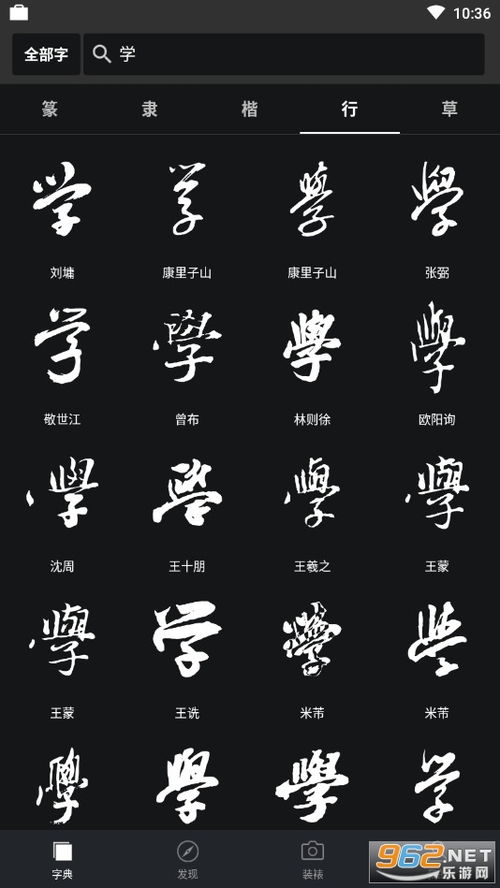 10:36
全部字 学
篆 隶 楷 行 草
学 学 學 學
刘墉 康里子山 康里子山 张弼
学 學 學 學
敬世江 曾布 林则徐 欧阳询
學 學 學 學
沈周 王十朋 王羲之 王蒙
學 学 學 学
王蒙 王诜 米芾 米芾
學 學 學 学
字典 发现 装裱
962.NET
乐游网